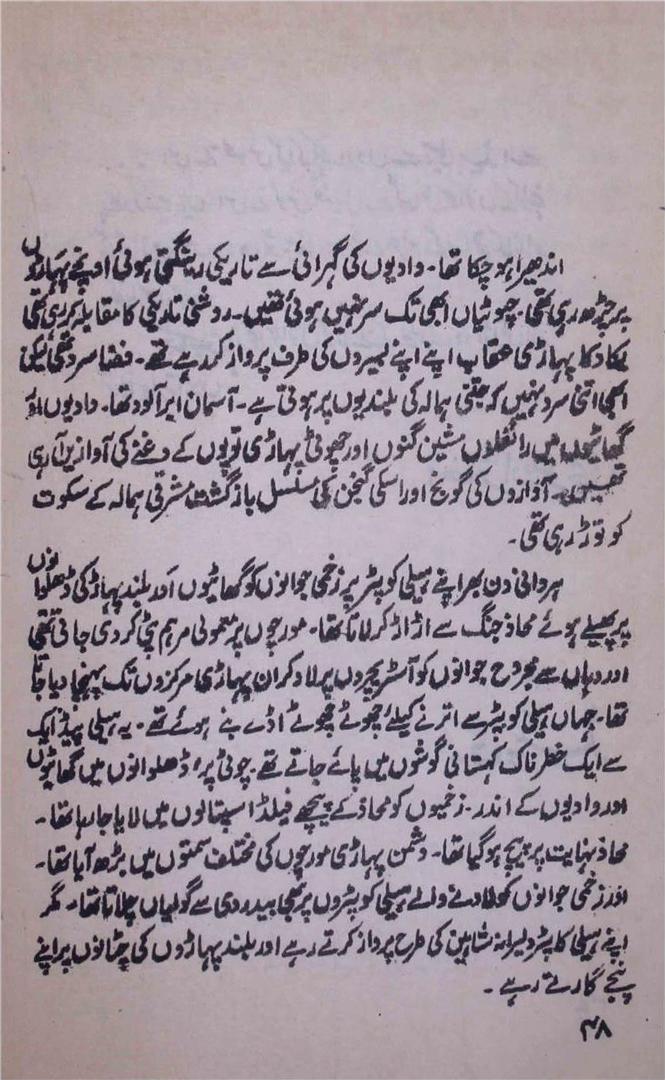 اندھیرا ہو چکا تھا۔ وادیوں کی گہرائی سے تاریکی رینگتی ہوئی اونچے پہاڑوں
پر چڑھ رہی تھی۔ چوٹیاں ابھی تک سر نہیں ہوئی تھیں۔ روشنی تاریکی کا مقابلہ کر رہی تھی
یکا دکا پہاڑی عقاب اپنے اپنے بسیروں کی طرف پرواز کر رہے تھے۔ فضا سرد تھی لیکن
ابھی اتنی سرد نہیں کہ جتنی ہمالہ کی بلندیوں پر ہوتی ہے۔ آسمان ابر آلود تھا۔ وادیوں اور
گھاٹیوں میں رائفلوں مشین گنوں اور چھوٹی پہاڑی توپوں کے دغنے کی آوازیں آ رہی
تھیں۔ آوازوں کی گونج اور اسکی گنجن کی مسلسل بازگشت مشرقی ہمالہ کے سکوت
کو توڑ رہی تھی۔
ہروانی دن بھر اپنے ہیلی کوپٹر پر زخمی جوانوں کو گھاٹیوں اور بلند پہاڑ کی ڈھلوانوں
پر پھیلے ہوئے محاذ جنگ سے اڑا اڑ کر لاتا تھا۔ مورچوں پر معمولی مرہم پٹی کر دی جاتی تھی
اور وہاں سے مجروح جوانوں کو اسٹریچروں پر لاد کر ان پہاڑی مرکزوں تک پہنچا دیا جاتا
تھا۔ جہاں ہیلی کوپٹر سے اترنے کیلئے چھوٹے چھوٹے اڈے بنے ہوئے تھے۔ یہ ہیلی پیڈ ایک
سے ایک خطرناک کہستانی گوشوں میں پائے جاتے تھے۔ چوٹی پر، ڈھلوانوں میں گھاٹیوں
اور وادیوں کے اندر۔ زخمیوں کو محاذ کے پیچھے فیلڈ اسپتالوں میں لایا جا رہا تھا۔
محاذ نہایت پر پیچ ہو گیا تھا۔ دشمن پہاڑی مورچوں کی مختلف سمتوں میں بڑھ آیا تھا۔
اور زخمی جوانوں کو لادنے والے ہیلی کوپٹروں پر بھی بیدردی سے گولیاں چلاتا تھا۔ مگر
اپنے ہیلی کاپٹر دلیرانہ شاہین کی طرح پرواز کرتے رہے اور بلند پہاڑوں کی چٹانوں پر اپنے
پنجے گاڑتے رہے۔
۴۸